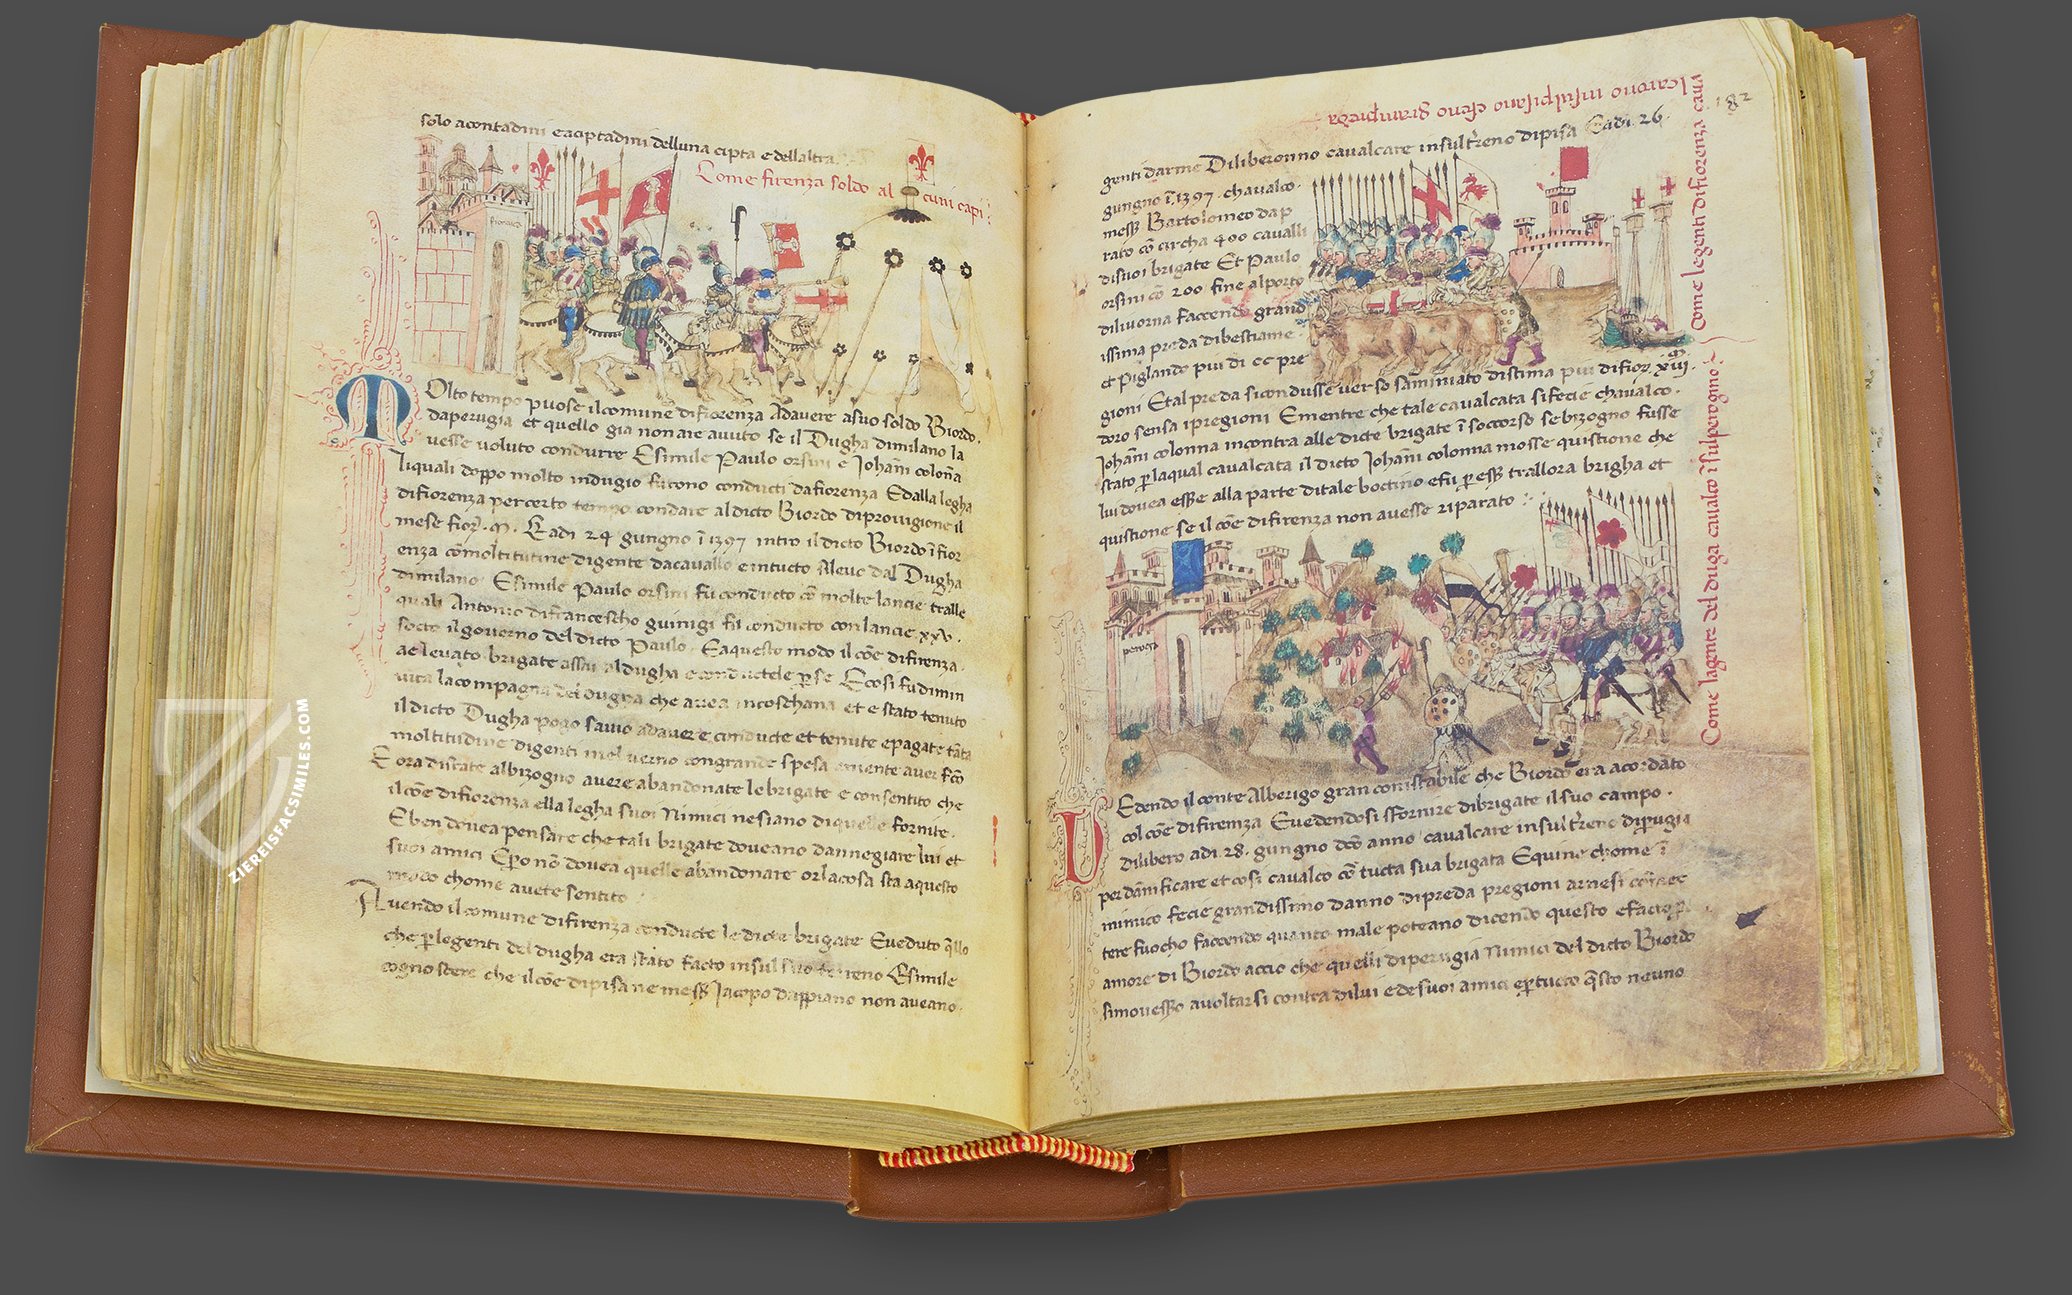 solo acontadini eaciptadini delluna cipta e dellaltra.
Come firenza soldo al cuni capi
fiorenza
Olto tempo puose ilcomune difiorenza Adavere asuo soldo Biordo.
daperugia et quello gia nonare auuto se il Dugha dimilano la
uesse uoluto condurre Esimile Paulo orsini e Johani colona
liquali doppo molto indugio furono conducti dafiorenza Edalla legha
difiorenza percerto tempo condare aldicto Biordo diprouigione il
mese fior. M. Eadi 24 gungno i 1397 intro il dicto Biordo i fior
enza comoltitutine digente dacauallo e intucto sileuo dal Dugha
dimilano Esimile Paulo orsini fu conducto co molte lancie tralle
quali Antonio difrancescho guinigi fu conducto con lancie xxv.
socto il gouerno del dicto Paulo. Eaquesto modo il coe difirenza.
ae leuato brigate assai al dugha e conductele p se Ecosi fu dimin
uita la compagna del dugha che auea in toschana et e stato tenuto
il dicto Dugha pogo sauio adauere conducte et tenute epagate tata
moltitudine digenti nel uerno congrande spesa
E ora distate albizogno auere abandonate le brigate e consentito che
il coe difiorenza ella legha suoi Nimici nesiano di quelle fornite.
Eben douea pensare che tali brigate doueano dannegiare lui et
suoi amici Epo no douea quelle abandonare or la cosa sta aquesto
modo chome auete sentito
Auendo il comune difirenza conducte le dicte brigate Eueduto qllo
che p legenti del dugha era stato facto insul suo terreno Esimile
cognoscere che il coe dipisa ne mess Jacopo dappiano non aueano.
182
Come legenti difiorenza caua
lcarono insulpisano efeno gran preda
genti darme Diliberonno caualcare insul treno dipisa Eadi 26
gungno i 1397. chaualco.
mess Bartolomeo da p
rato co circha 400 caualli
disuoi brigate Et Paulo
orsini co 200 fine al porto
diliuorna faccendo grand
issima preda dibestiame
et pigliando piu di cc pre
gioni Et al preda si condusse uerso saminiato distima piu di fior xiiii
doro sensa i pregioni E mentre che tale caualcata si fecie chaualco.
Johani colonna incontra alle dicte brigate i soccorso se bizogno fusse
stato p laqual caualcata il dicto Johani colonna mosse quistione che
lui douea esse alla parte di tale boctino e fu p ess trallora brigha et
quistione se il coe di firenza non auesse riparato
perugia
Come lagente del duga caualco i sul perogino
Edendo il conte Alberigo gran conistabile che Biordo era acordato
col coe difirenza Euedendosi sfornire dibrigate il suo campo.
dilibero adi 28. gungno dco anno caualcare insul treno dipugia
per danificare et cosi caualco co tucta sua brigata Equine chome i
nimico fecie grandissimo danno dipreda pregioni arnesi
tere fuocho faccendo quanto male poteano dicendo questo
amore di Biordo accio che quelli diperugia Nimici del dicto Biordo
simouesso auoltarsi contra dilui e desuoi amici e p tucto qsto neuno
ZIEREISFACSIMILES.COM